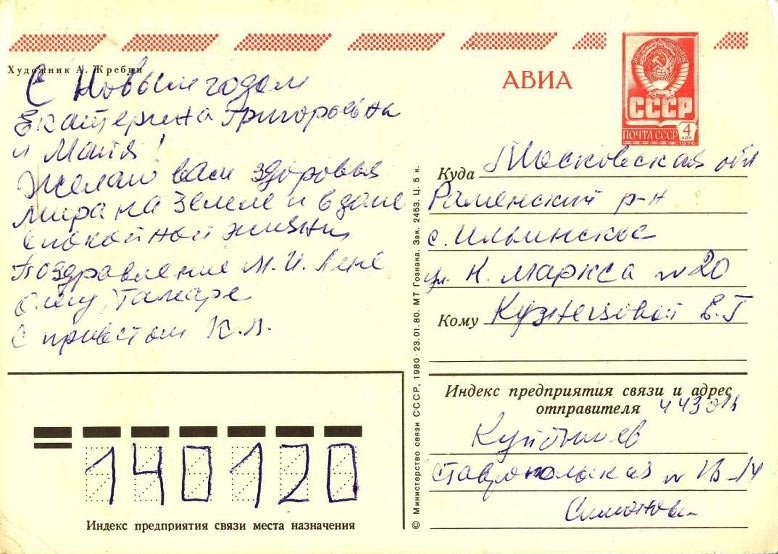 Художник А. Жребин
С Новым годом
Екатерина Григорьевна
и Майя!
Желаю вам здоровья
мира на земле и в доме
спокойной жизни
Поздравление М.И. Лене
Олегу, Тамаре
С приветом К.Л.
АВИА
СССР
ПОЧТА СССР 4 КОП
1976
Куда Московская обл
Раменский р-н
с. Ильинское
ул. К. Маркса № 20
Кому Кузнецовой Е.Г
© Министерство связи СССР, 1980 23.01.80. МТ Гознака. Зак. 2453. Ц. 5 к.
Индекс предприятия связи и адрес
отправителя
Куйбышев
Ставропольская №
140120
Индекс предприятия связи места назначения